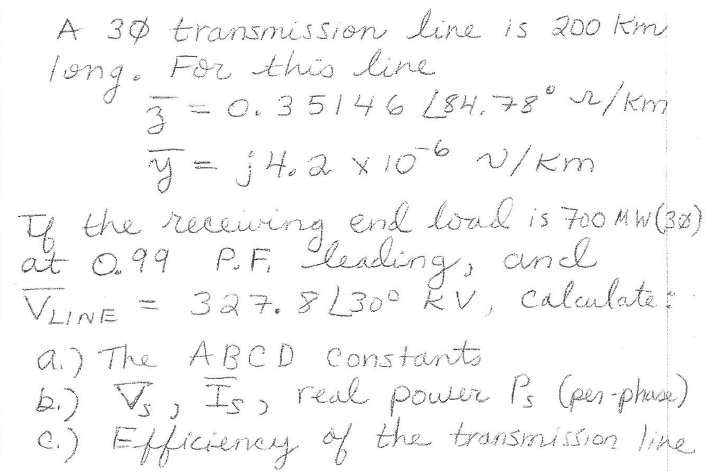 A 3Ø transmission line is 200 Km
long. For this line
z̄ = 0.35146 ∠84.78° Ω/Km
ȳ = j4.2 x 10⁻⁶ ℧/Km
If the receiving end load is 700 MW(3Ø)
at 0.99 P.F. leading, and
V̄LINE = 327.8∠30° KV, calculate:
a.) The ABCD constants
b.) V̄s, Īs, real power Ps (per-phase)
c.) Efficiency of the transmission line